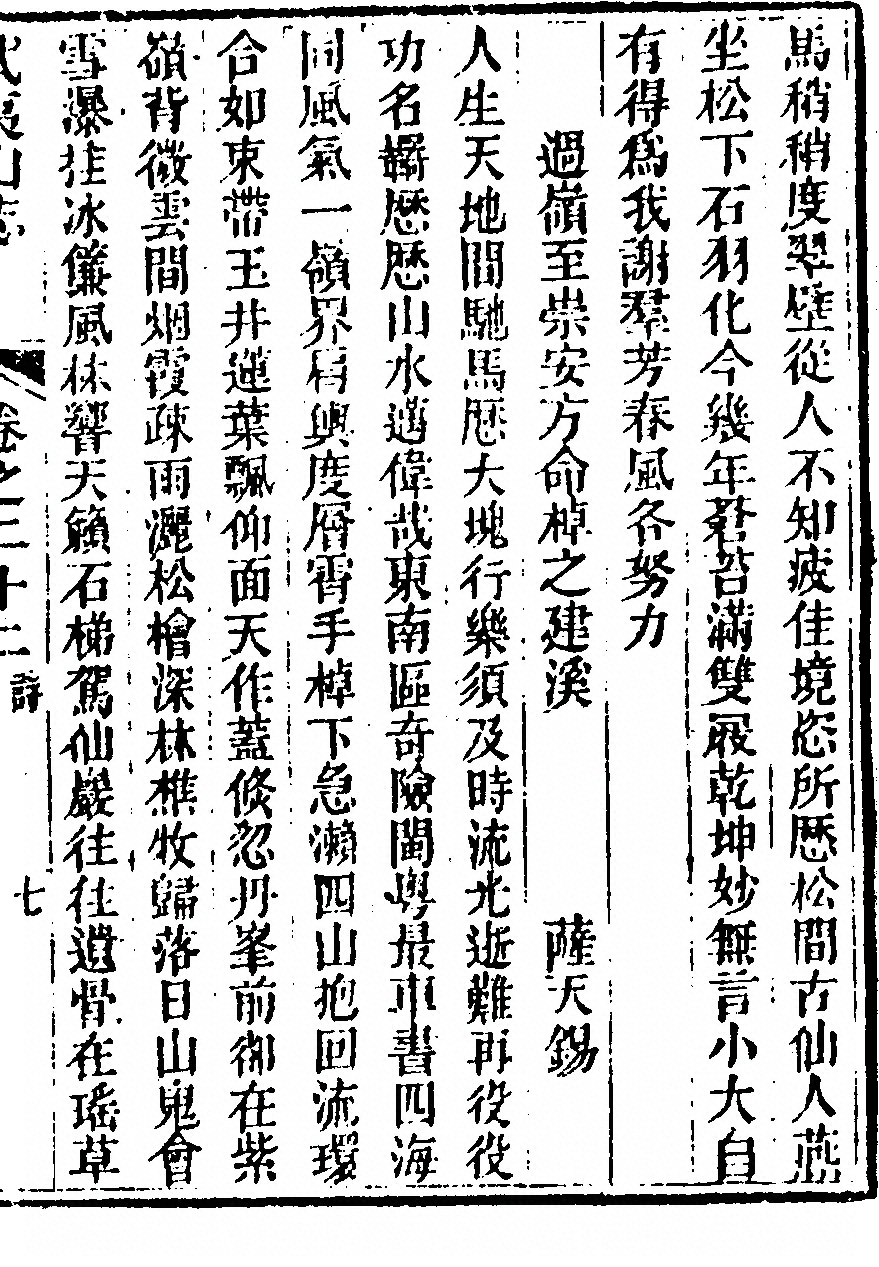 馬稍稍度翠壁從人不知疲佳境恣所歷松間古仙人燕
坐松下石羽化今幾年蒼苔滿雙屐乾坤妙無言小大自
有得爲我謝羣芳春風各努力
過嶺至崇安方命棹之建溪 薩天錫
人生天地間馳馬歷大塊行樂須及時流光逝難再役役
功名羈歷歷山水邁偉哉東南區奇險閩粤最車書四海
同風氣一嶺界肩輿度層霄手棹下急瀨四山抱回流環
合如束帶玉井蓮葉飄仰面天作蓋倐忽丹峯前御在紫
嶺背微雲間烟霞疎雨灑松檜深林樵牧歸落日山鬼會
雪瀑挂冰簾風林響天籟石梯駕仙巖往往遺骨在瑤草
武夷山志 卷之二十二 詩 七